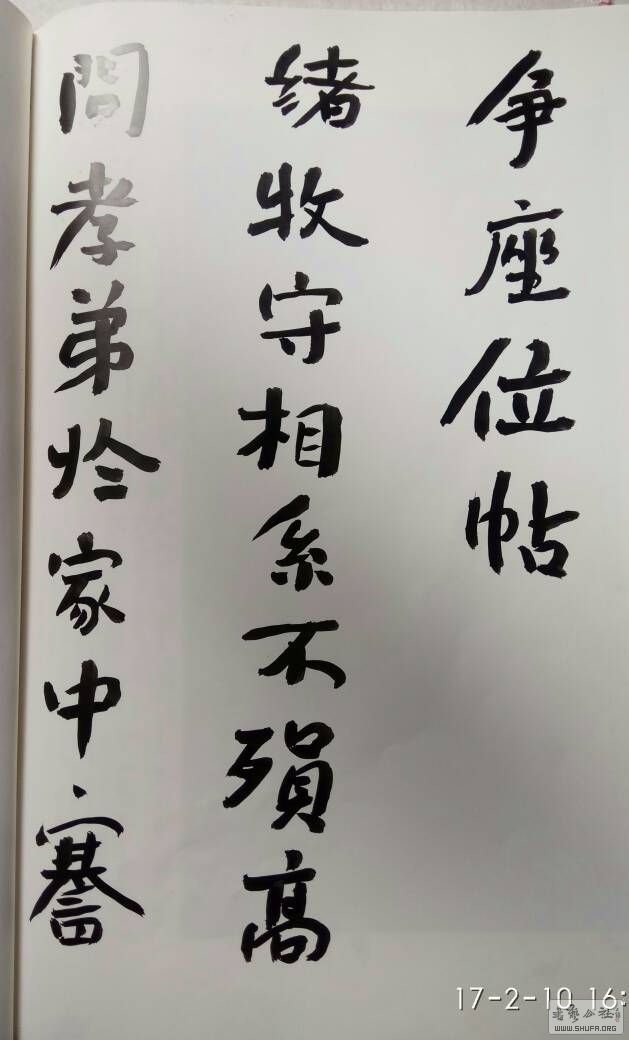 争座位帖
绪牧守相系不殒高
問孝弟於家中謇
17-2-10 16:
書艺公社
WWW.SHUFA.ORG